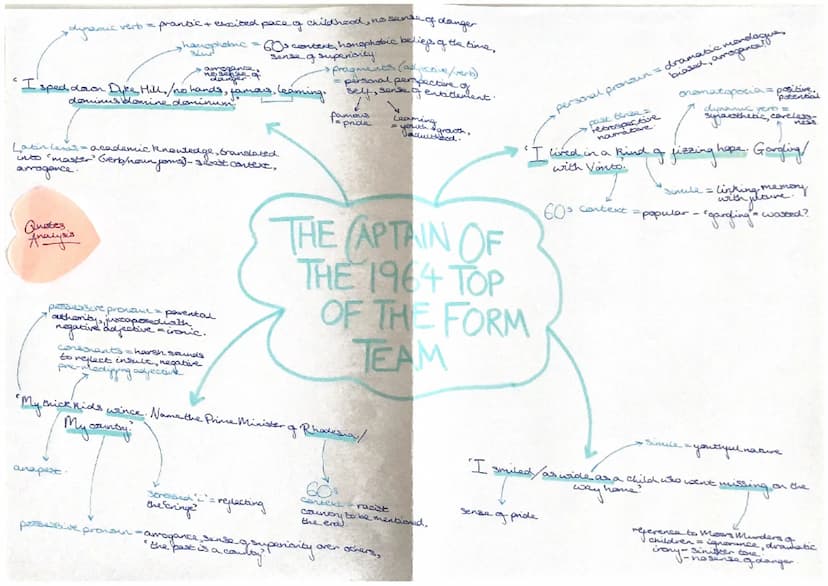 dynamic verb = frantic + excited pace of childhood, no sense of danger
homophobic slur = 60s context, homophobic beliefs of the time, sense of superiority
arrogance, no sense of danger
fragments (adjective/verb) = personal perspective of self, sense of entitlement.
famous = pride
learning = youth + growth,
'I sped down Dyke Hill,/no hands, famous, learning,
dominus domine dominum'
Latin lexis = academic knowledge, translated
into 'master' (verb/noun forms) -
context,
arrogance.
personal pronoun = dramatic monologue,
biased, arrogance?
past tense =
retrospective
narrative
onomatopoeia = positive,
potential
dynamic verb =
synaesthetic, careless-
ness.
'I lived in a kind of fizzing hope. Gargling/
with Vimto.'
simile = linking memory
with future.
60s context = popular - "gargling" = wasted?
Quotes
Analysis
THE CAPTAIN OF
THE 1964 TOP
OF THE FORM
TEAM
possessive pronoun = parental
authority, juxtaposed with
negative adjective = ironic.
consonants = harsh sounds
to reflect insult, negative
pre-modifying adjective
'My thick kids wince. Name the Prime Minister of Rhodesia/
My country.'
anapest.
= reflecting
the 'cringe'
60s
context = racist
country to be mentioned.
the end.
possessive pronoun = arrogance, sense of superiority over others,
'the past is a country'?
simile = youthful nature
'I smiled/as wide as a child who went missing on the
way home'
sense of pride
reference to Moors Murders of
children = ignorance, dramatic
irony - sinister tone
- no sense of danger.